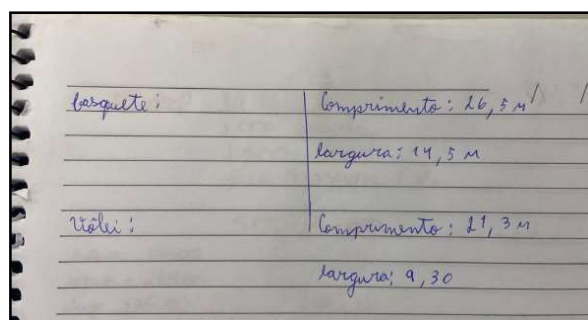 basquete: Comprimento: 26,5 m
largura: 14,5 m
Vôlei: Comprimento: 21,3 m
largura: 9,30